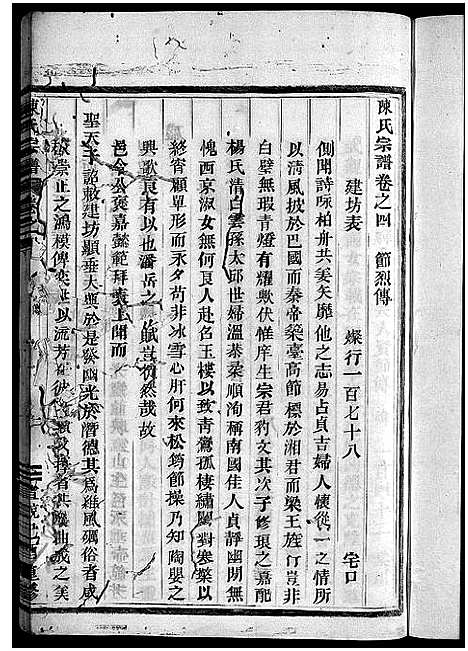 陳氏宗譜卷之四　節烈傳
建坊表　燦行一百七十八　宅口
側聞詩咏柏舟共姜矢靡他之志易占貞吉婦人懷從一之情所
以清風披於巴國而秦帝築臺高節標於湘君而梁王旌门豈非
白壁無瑕青燈有耀歟伏惟庠生宗君豹文其次子修琅之嘉配
楊氏清白雲孫太邱世婦溫恭柔順洵稱南國佳人貞靜幽閒無
愧西京淑女無何良人赴召名玉樓以致青鸞孤棲繡閣對寒檠以
終宵顧單形而永夕苟非冰雪心肝何來松筠節操乃知陶嬰之
興歌良有以也潘岳之 誠豈徒然哉故
邑令公褒嘉懿範拜表上聞而
聖天子詔敕建坊顯垂大典於是發幽光於潛德其爲維風礪俗者咸
崇正之鴻模傳奕世以流芳
陳氏宗譜